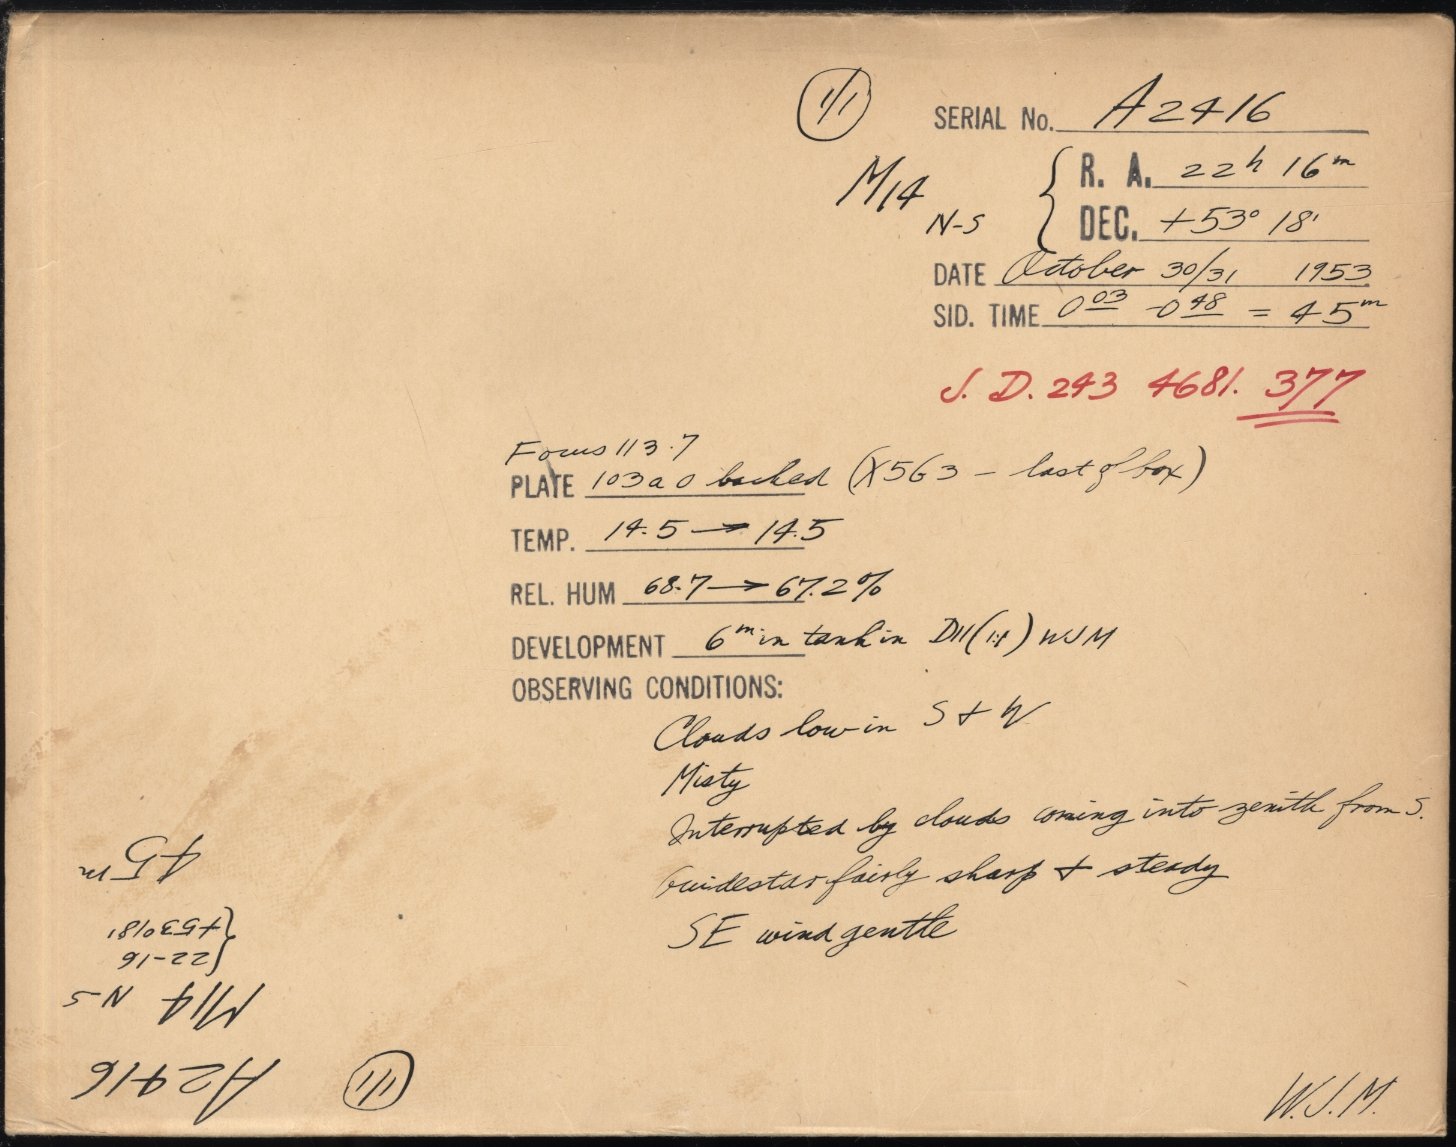 1/1
SERIAL No. A2416
M14 N-S { R. A. 22h 16m
DEC. +53° 18'
DATE October 30/31 1953
SID. TIME 0 03 - 0 48 = 45m
J. D. 243 4681. 377
Focus 113.7
PLATE 103a O backed (X563 - last of box)
TEMP. 14.5 → 14.5
REL. HUM 68.7 → 67.2%
DEVELOPMENT 6m in tank in D11 (1:1) WJM
OBSERVING CONDITIONS:
Clouds low in S + W
Misty
Interrupted by clouds coming into zenith from S.
Guidestar fairly sharp + steady
SE wind gentle
W.J.M.
1/1 A2416
M14 N-S
{22-16
{+53°18'
45m